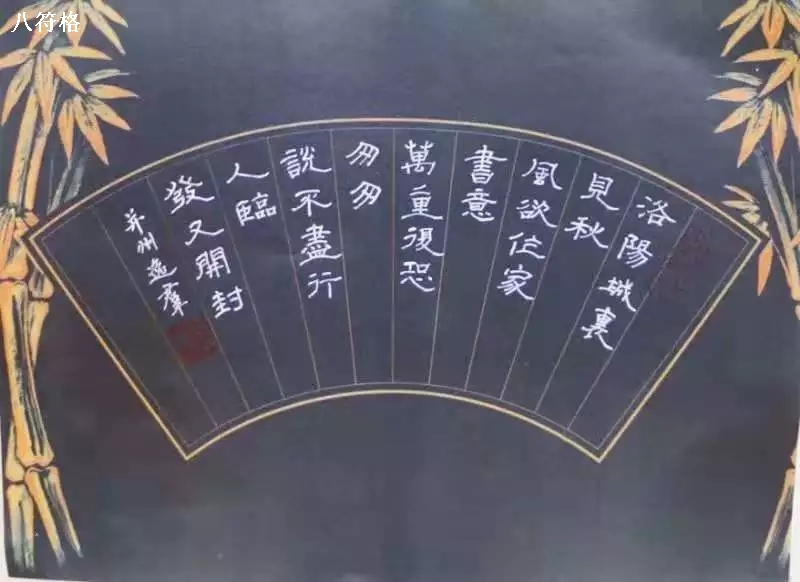 八符格
洛陽城裏
見秋
風欲作家
書意
萬重復恐
匆匆
說不盡行
人臨
發又開封
并州逸羣